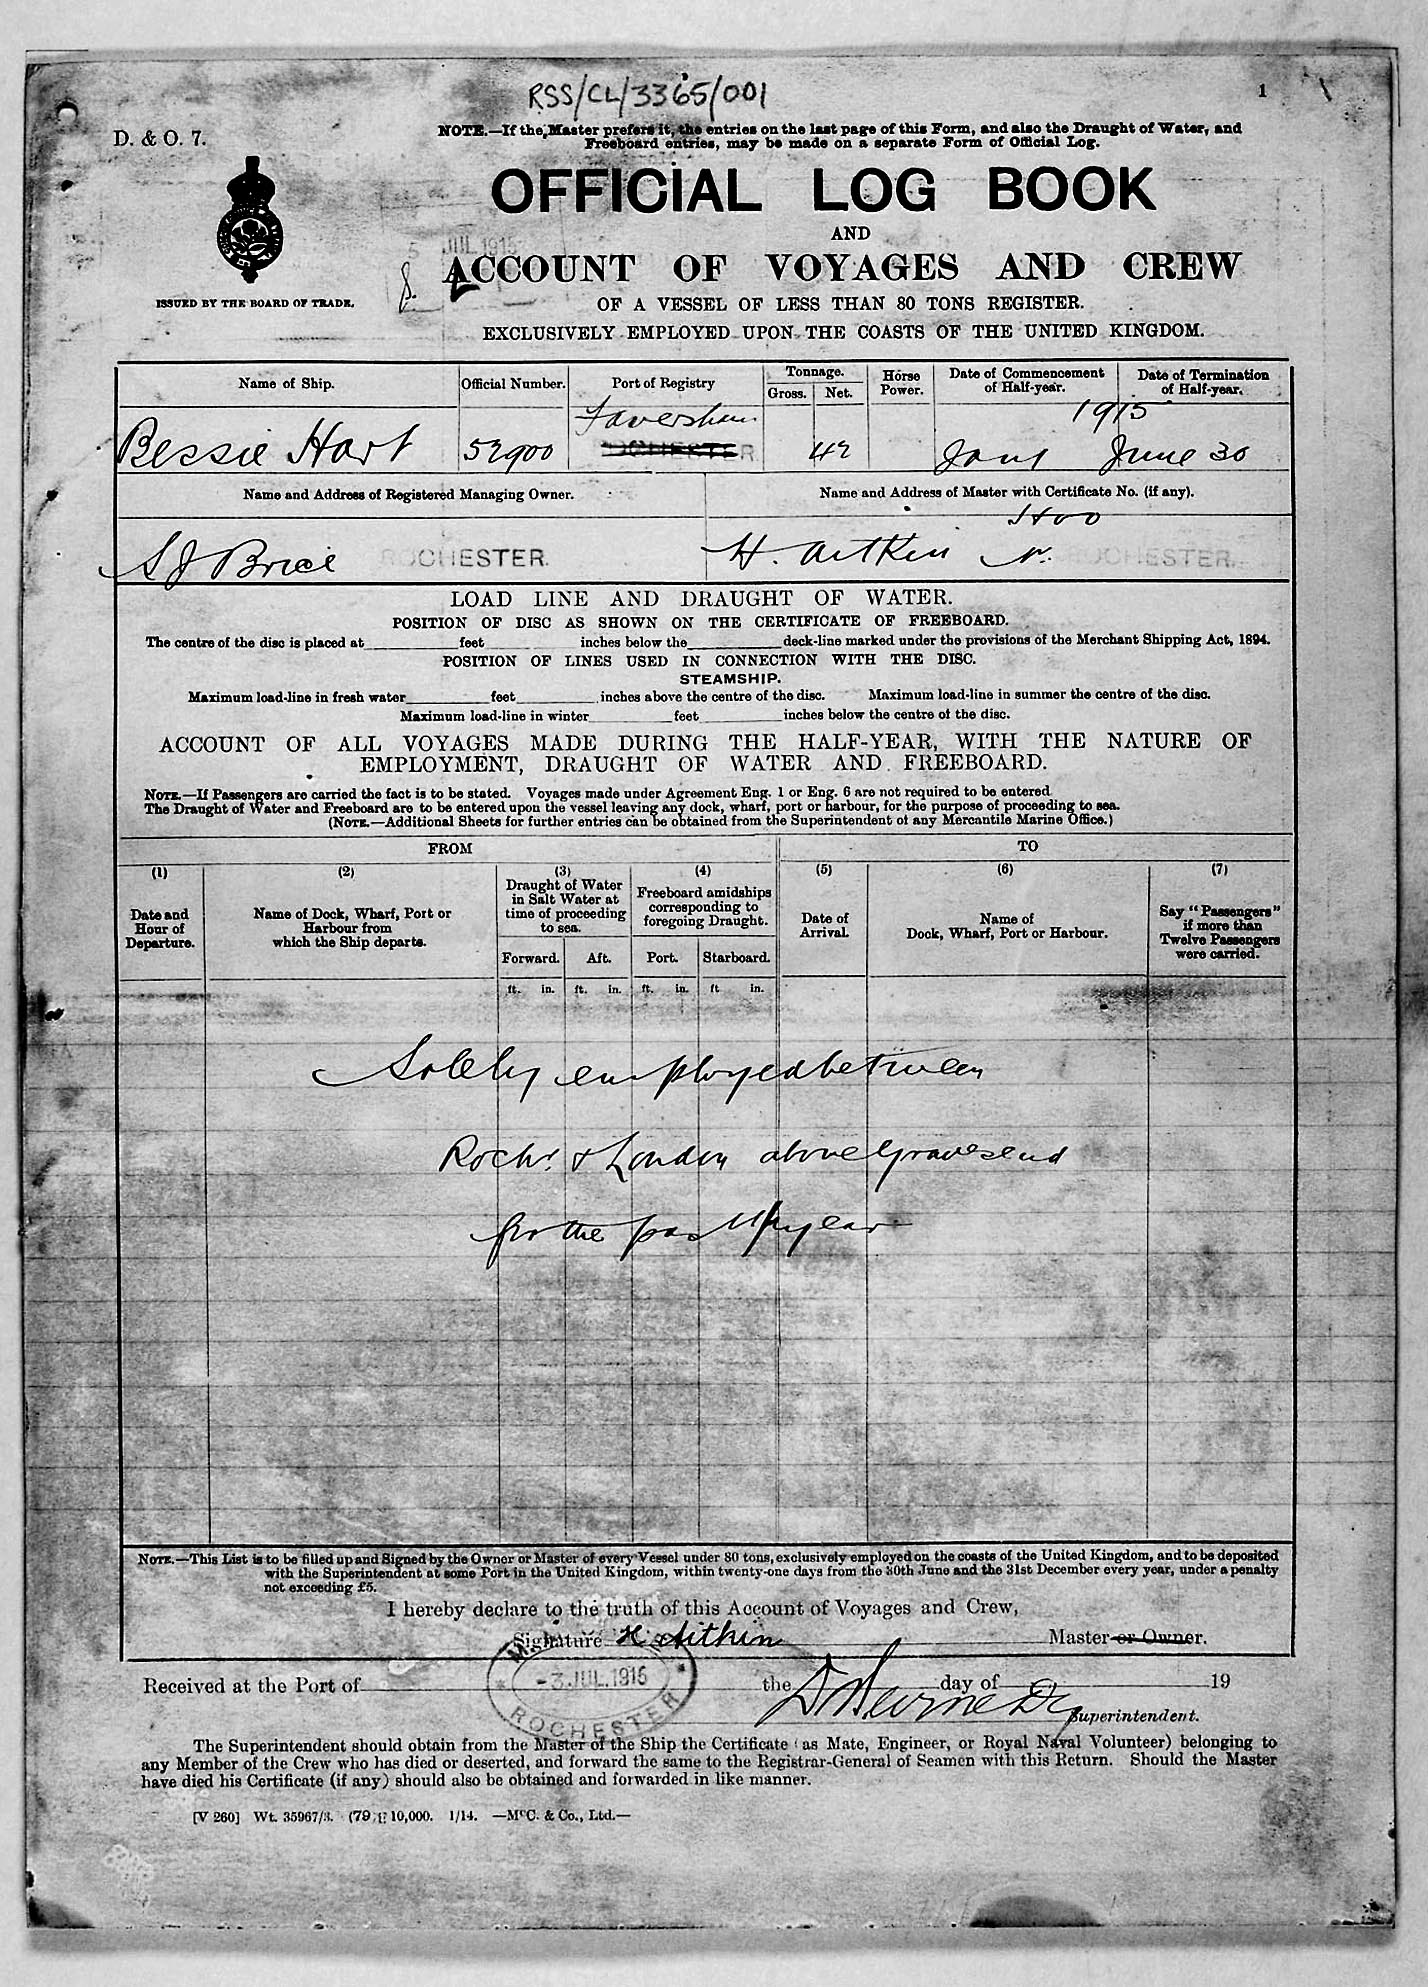 RSS/CL/3365/001
1
D. & O. 7.
NOTE.—If the Master prefers it, the entries on the last page of this Form, and also the Draught of Water, and
Freeboard entries, may be made on a separate Form of Official Log.
OFFICIAL LOG BOOK
AND
5 JUL 1915
ACCOUNT OF VOYAGES AND CREW
ISSUED BY THE BOARD OF TRADE.
OF A VESSEL OF LESS THAN 80 TONS REGISTER.
EXCLUSIVELY EMPLOYED UPON THE COASTS OF THE UNITED KINGDOM.
Name of Ship. Official Number. Port of Registry Tonnage. Gross. Net. Horse Power. Date of Commencement of Half-year. Date of Termination of Half-year.
Faversham 1915
Bessie Hart 52900 ROCHESTER 42 Jany June 30
Name and Address of Registered Managing Owner. Name and Address of Master with Certificate No. (if any).
Hoo
S J Brice ROCHESTER. H. Aitkin Nr. ROCHESTER.
LOAD LINE AND DRAUGHT OF WATER.
POSITION OF DISC AS SHOWN ON THE CERTIFICATE OF FREEBOARD.
The centre of the disc is placed at feet inches below the deck-line marked under the provisions of the Merchant Shipping Act, 1894.
POSITION OF LINES USED IN CONNECTION WITH THE DISC.
STEAMSHIP.
Maximum load-line in fresh water feet inches above the centre of the disc. Maximum load-line in summer the centre of the disc.
Maximum load-line in winter feet inches below the centre of the disc.
ACCOUNT OF ALL VOYAGES MADE DURING THE HALF-YEAR, WITH THE NATURE OF
EMPLOYMENT, DRAUGHT OF WATER AND FREEBOARD.
NOTE.—If Passengers are carried the fact is to be stated. Voyages made under Agreement Eng. 1 or Eng. 6 are not required to be entered
The Draught of Water and Freeboard are to be entered upon the vessel leaving any dock, wharf, port or harbour, for the purpose of proceeding to sea.
(NOTE.—Additional Sheets for further entries can be obtained from the Superintendent of any Mercantile Marine Office.)
FROM TO
(1) (2) (3) (4) (5) (6) (7)
Date and Hour of Departure.
Name of Dock, Wharf, Port or Harbour from which the Ship departs.
Draught of Water in Salt Water at time of proceeding to sea.
Freeboard amidships corresponding to foregoing Draught.
Date of Arrival.
Name of Dock, Wharf, Port or Harbour.
Say "Passengers" if more than Twelve Passengers were carried.
Forward. Aft. Port. Starboard.
ft. in. ft. in. ft. in. ft in.
Solely employed between
Rochr. & London above Gravesend
for the past ½ year
NOTE.—This List is to be filled up and Signed by the Owner or Master of every Vessel under 80 tons, exclusively employed on the coasts of the United Kingdom, and to be deposited
with the Superintendent at some Port in the United Kingdom, within twenty-one days from the 30th June and the 31st December every year, under a penalty
not exceeding £5.
I hereby declare to the truth of this Account of Voyages and Crew,
Signature H Aitkin Master or Owner.
-3 JUL.1915
ROCHESTER
Received at the Port of the day of 19
Superintendent.
The Superintendent should obtain from the Master of the Ship the Certificate (as Mate, Engineer, or Royal Naval Volunteer) belonging to
any Member of the Crew who has died or deserted, and forward the same to the Registrar-General of Seamen with this Return. Should the Master
have died his Certificate (if any) should also be obtained and forwarded in like manner.
[V 260] Wt. 35967/3. 10,000. 1/14. —McC. & Co., Ltd.—